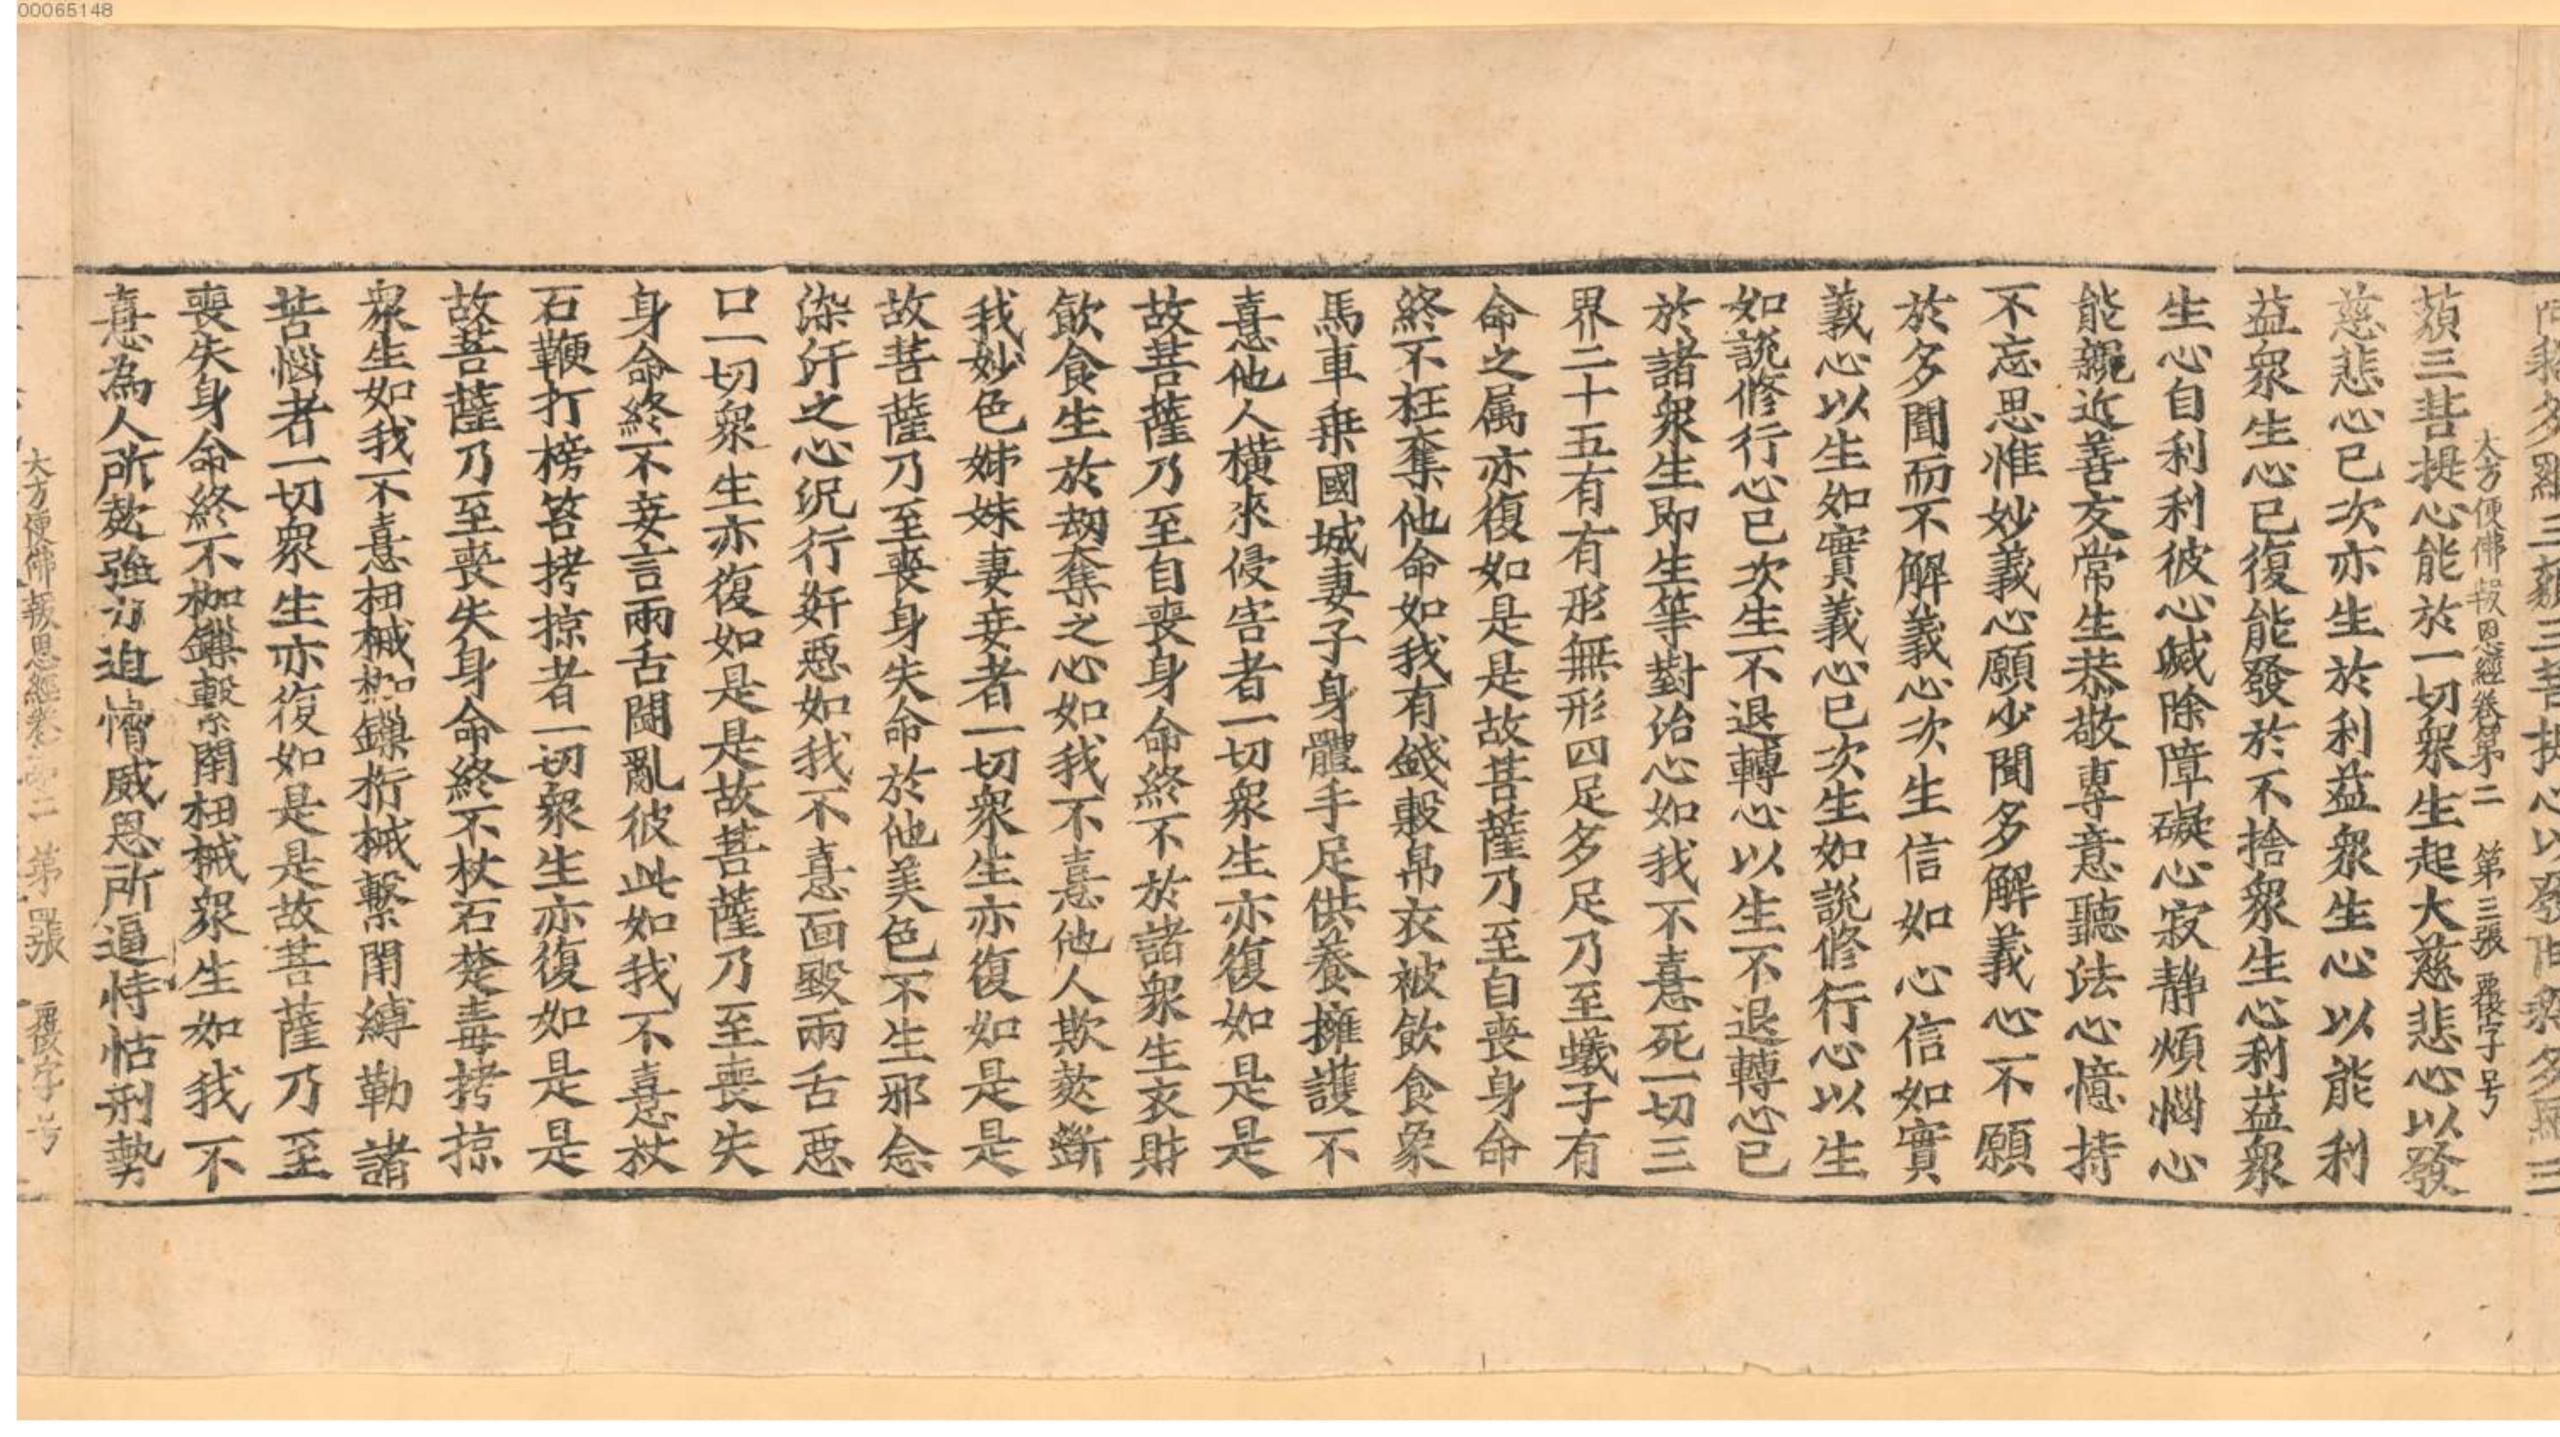 00065148
大方便佛報恩經卷第二　第三張　覆字号
藐三菩提心能於一切衆生起大慈悲心以發
慈悲心已次亦生於利益衆生心以能利
益衆生心已復能發於不捨衆生心利益衆
生心自利利彼心滅除障礙心寂静煩惱心
能親近善友常生恭敬專意聽法心憶持
不忘思惟妙義心願少聞多解義心不願
於多聞而不解義心次生信如心信如實
義心以生如實義心已次生如說修行心以生
如說修行心已次生不退轉心以生不退轉心已
於諸衆生即生等對治心如我不憙死一切三
界二十五有有形無形四足多足乃至蟻子有
命之属亦復如是是故菩薩乃至自喪身命
終不枉奪他命如我有錢穀帛衣被飲食象
馬車乗國城妻子身體手足供養擁護不
憙他人橫來侵害者一切衆生亦復如是是
故菩薩乃至自喪身命終不於諸衆生衣財
飲食生於刼奪之心如我不憙他人欺㱇斷
我妙色姊妹妻妾者一切衆生亦復如是是
故菩薩乃至喪身失命於他美色不生邪念
染汙之心況行奸惡如我不憙面毀兩舌惡
口一切衆生亦復如是是故菩薩乃至喪失
身命終不妄言兩舌鬪亂彼此如我不憙杖
石鞭打榜笞拷掠者一切衆生亦復如是是
故菩薩乃至喪失身命終不杖石楚毒拷掠
衆生如我不憙杻械枷鏁桁械繫閉縛勒諸
苦惱者一切衆生亦復如是是故菩薩乃至
喪失身命終不枷鏁繫閉杻械衆生如我不
憙為人所㱇強力迫愶威恩所逼恃怙刑勢
大方便佛報恩經卷第二　第四張　覆字号